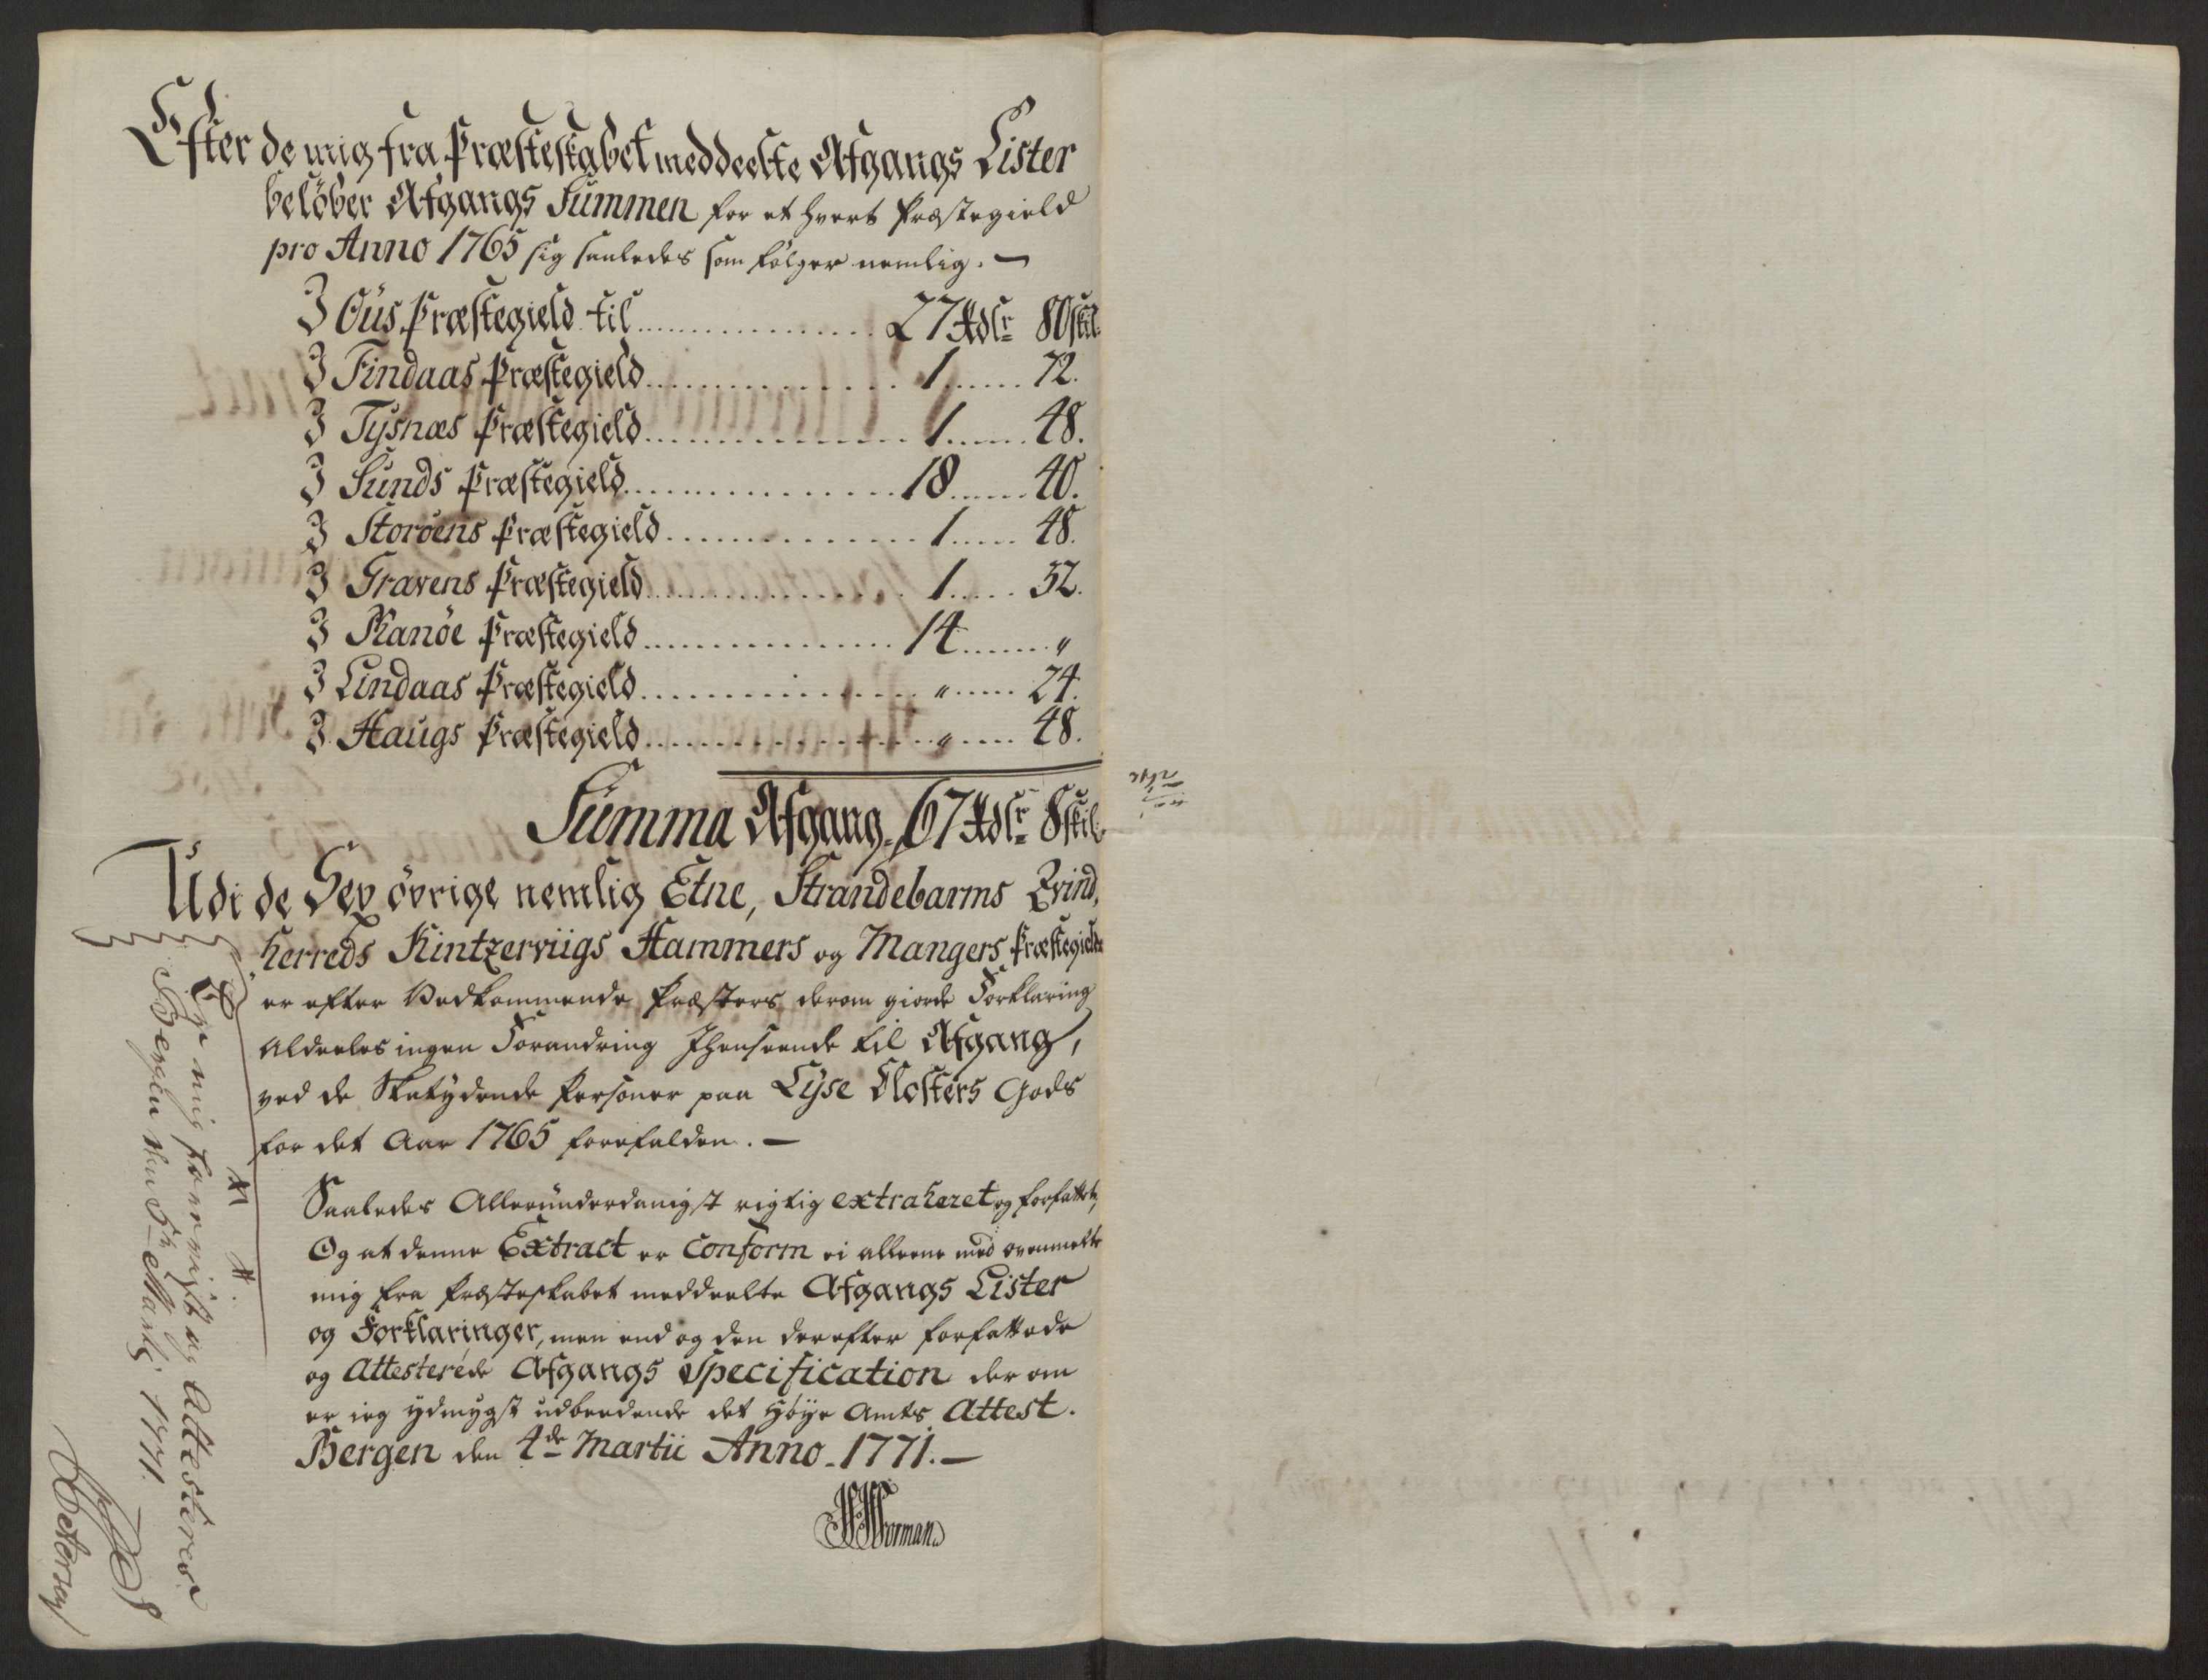 Efter de mig fra Præsteskabet meddeelte Afgangs Lister
beløber Afgangs Summen for et hvert Præstegield
pro Anno 1765 sig saaledes som følger nemlig. —
I Ous Præstegield til 27 Rdlr 80 skil.
I Findaas Præstegield 1 72.
I Tysnæs Præstegield 1 48.
I Sunds Præstegield 18 40.
I Storøens Præstegield 1 48.
I Gravens Præstegield 1 32.
I Manøe Præstegield 14 "
I Lindaas Præstegield " 24.
I Haugs Præstegield " 48.
Summa Afgang. 67 Rdlr 8 skil.
Udi de Sex øvrige nemlig Etne, Strandebarms Qvind,
herreds Kintzerviigs Hammers og Mangers Præstegielde
er efter Vedkommende Præsters derom giorde Forklaring
aldeeles ingen Forandring Ihenseende til Afgang,
ved de Skatydende Personer paa Lyse Closters Gods
for det Aar 1765 forefalden. —
Saaledes Allerunderdanigst rigtig extraheret og forfattet,
Og at denne Extract er Conform ei alleene med ovenmelte
mig fra Præsteskabet meddeelte Afgangs Lister
og Forklaringer, men end og den derefter forfattede
og Attesterede Afgangs Specification der om
er ieg ydmygst udbeedende det Høye Amts Attest.
Bergen den 4de Martii Anno 1771. —
Worman
Er mig foreviist og Attesteres
Bergen den Martii 1771.
Petersen